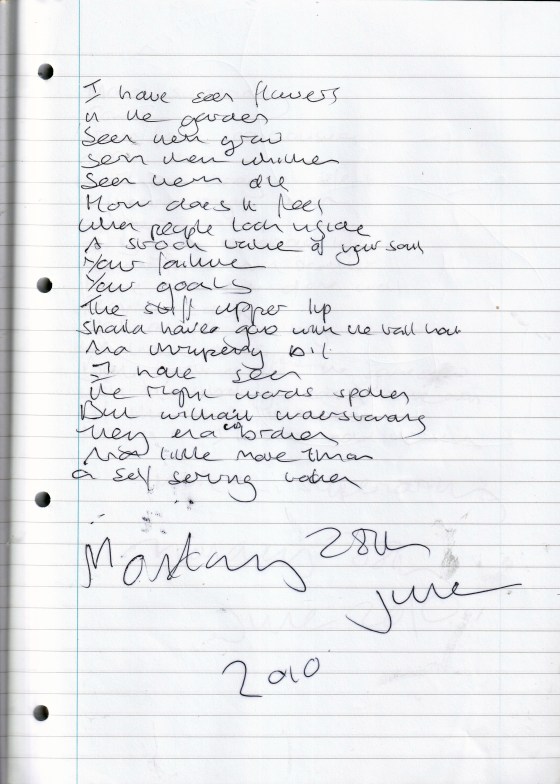 I have seen flowers
in the garden
Seen them grow
Seen them whither
Seen them die
How does it feel
When people look inside
A stock value of your soul
Your failure
Your goals
The stiff upper lip
Should have gone with the
And
I have seen
The right words spoken
But without understanding
They end up broken
And little more than
a self serving token
28th
June
2010